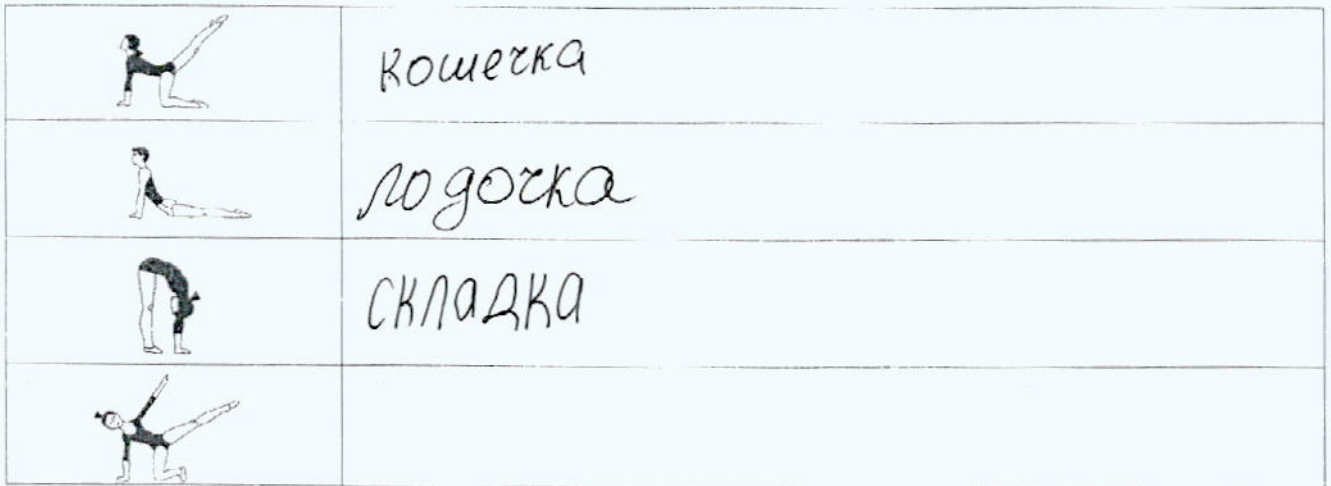 кошечка
лодочка
складка